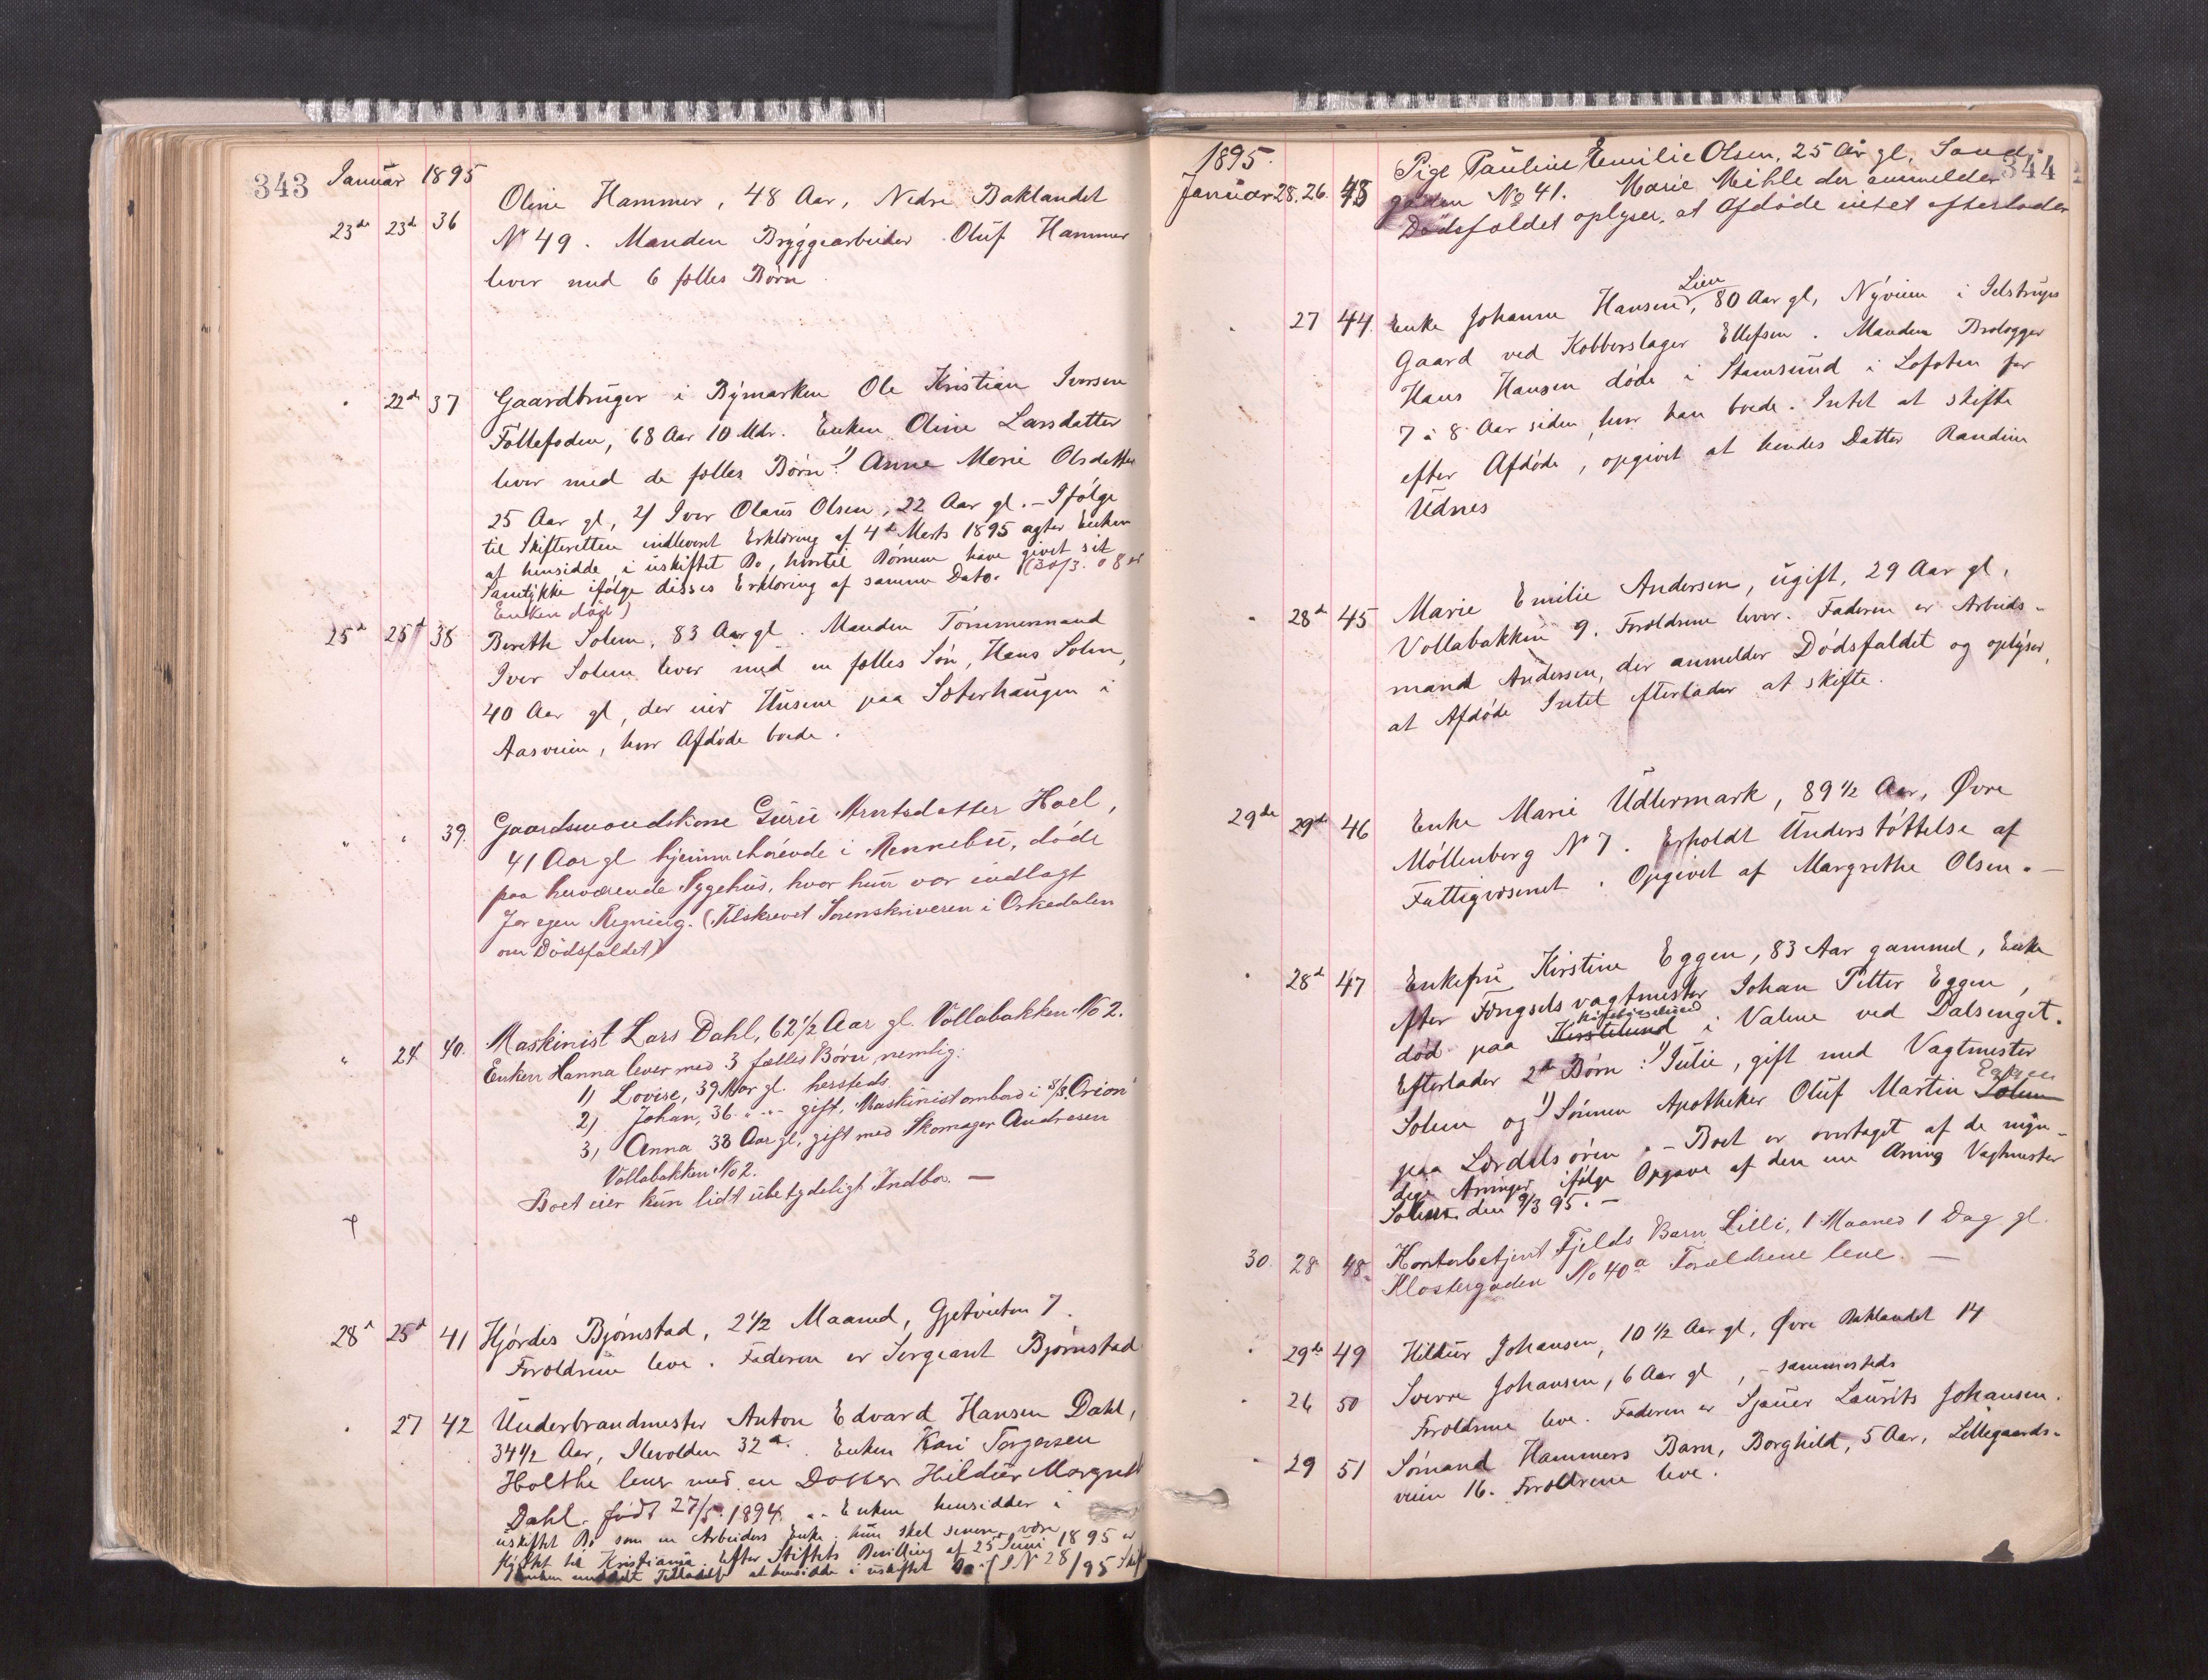 343
Januar 1895
23de 23de 36 Oline Hammer, 48 Aar, Nedre Baklandet
No 49. Manden Bryggearbeider Oluf Hammer
lever med 6 fælles Børn.
" 22de 37 Gaardbruger i Bymarken Ole Kristian Iversen
Føllefoden, 68 Aar 10 Mdr. Enken Oline Larsdatter
lever med de fælles Børn: 1) Anne Marie Olsdatter
25 Aar gl, 2) Iver Olaus Olsen, 22 Aar gl. - Ifølge
til Skifteretten indleveret Erklæring af 4de Marts 1895 agter Enken
at hensidde i uskiftet Bo, hvortil Børnene have givet sit
Samtykke ifølge disses Erklæring af samme Dato. (30/3. 08 er
Enken død)
25de 25de 38 Bereth Solem, 83 Aar gl. Manden Tømmermand
Iver Solem lever med en fælles Søn, Hans Solem,
40 Aar gl, der eier Husene paa Sæterhaugen i
Aasveien, hvor Afdøde boede.
" " 39. Gaardmandskone Guru Arntsdatter Hoel,
41 Aar gl hjemmehørende i Rennebu, døde
paa herværende Sygehus, hvor hun var indlagt
for egen Regning. (Tilskrevet Sorenskriveren i Orkedalen
om Dødsfaldet)
" 24 40. Maskinist Lars Dahl, 62 1/2 Aar gl. Vollabakken No 2.
Enken Hanna lever med 3 fælles Børn, nemlig:
1) Lovise, 39 Aar gl. hersteds.
2) Johan, 36 " " gift, Maskinist ombord i S/S. "Orion"
3) Anna 33 Aar gl, gift med Skomager Andresen
Vollabakken No 2.
Boet eier kun lidt ubetydeligt Indbo. -
28de 25de 41 Hjørdis Bjørnstad, 2 1/2 Maaned, Gjetveiten 7.
Forældrene leve. Faderen er Sergeant Bjørnstad
" 27 42 Underbrandmester Anton Edvard Hansen Dahl,
34 1/2 Aar, Ilevolden 32 a. Enken Kari Torgersen
Holthe lever med en Datter Hildur Margreth
Dahl. født 27/5. 1894. - Enken hensidder i
uskiftet Bo som en Arbeiders Enke. hun skal senere være
flyttet til Kristiania. Efter Stiftets Bevilling af 25 Juni 1895 er
Enken meddelt Tilladelse at hensidde i uskiftet Bo. (IN 28/95
344
1895.
Januar 28. 26. 43 Pige Pauline Emilie Olsen, 25 Aar gl, Sand-
gaden No 41. Marie Mehle der anmelder
Dødsfaldet oplyser, at Afdøde intet efterlader
Lien
" 27 44. Enke Johanne Hansen, 80 Aar gl, Nyveien i Ilstrups
Gaard ved Kobberslager Ellefsen. Manden Brolægger
Hans Hansen døde i Stamsund i Lofoten for
7 à 8 Aar siden, hvor han boede. Intet at skifte
efter Afdøde, opgivet at hendes Datter Randine
Udnes
" 28de 45 Marie Emilie Andersen, ugift, 29 Aar gl,
Vollabakken 9. Forældrene lever. Faderen er Arbeids-
mand Andersen, der anmelder Dødsfaldet og oplyser,
at Afdøde Intet efterlader at skifte.
29de 29de 46 Enke Marie Udlermark, 89 1/2 Aar, Øvre
Møllenberg No 7. Erholdt Understøttelse af
Fattigvæsenet. Opgivet af Margrethe Olsen. -
" 28de 47 Enkefru Kirstine Eggen, 83 Aar gammel, Enke
efter Fængselsvagtmester Johan Petter Eggen,
død paa i Valene ved Dalsenget.
Efterlader 2de Børn: 1) Julie, gift med Vagtmester
Eggen
Solem og 2) Sønnen Apotheker Oluf Martin Solem
paa Lærdalsøren. - Boet er overtaget af de myn-
dige Arvinger ifølge Opgave af den ene Arving Vagtmester
Solem den 9/3 95. -
30. 28 48. Kontorbetjent Fjelds Barn Lilli, 1 Maaned 1 Dag gl.
Klostergaden No 40 a Forældrene leve. -
" 29de 49 Hildur Johansen, 10 1/2 Aar gl, Øvre Baklandet 14
" 26 50 Sverre Johansen, 6 Aar gl, - sammesteds
Forældrene leve. Faderen er Sjauer Laurits Johansen.
" 29 51 Sømand Hammers Barn, Borghild, 5 Aar, Lillegaards-
veien 16. Forældrene leve.